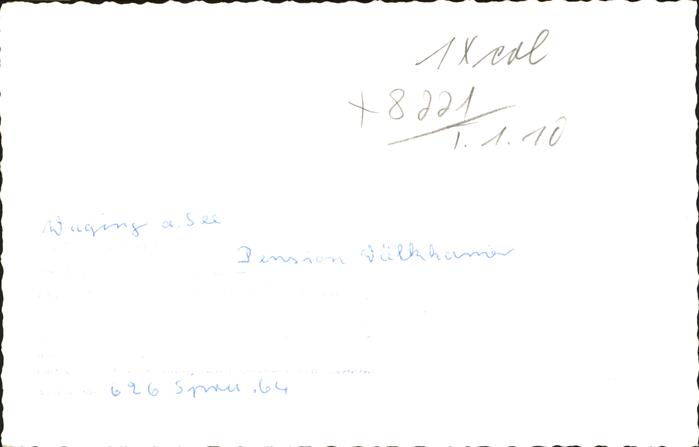 1 X col
+ 8221
1.1.10
Waging a. See
Pension Wälkhamer
626 Spree .64